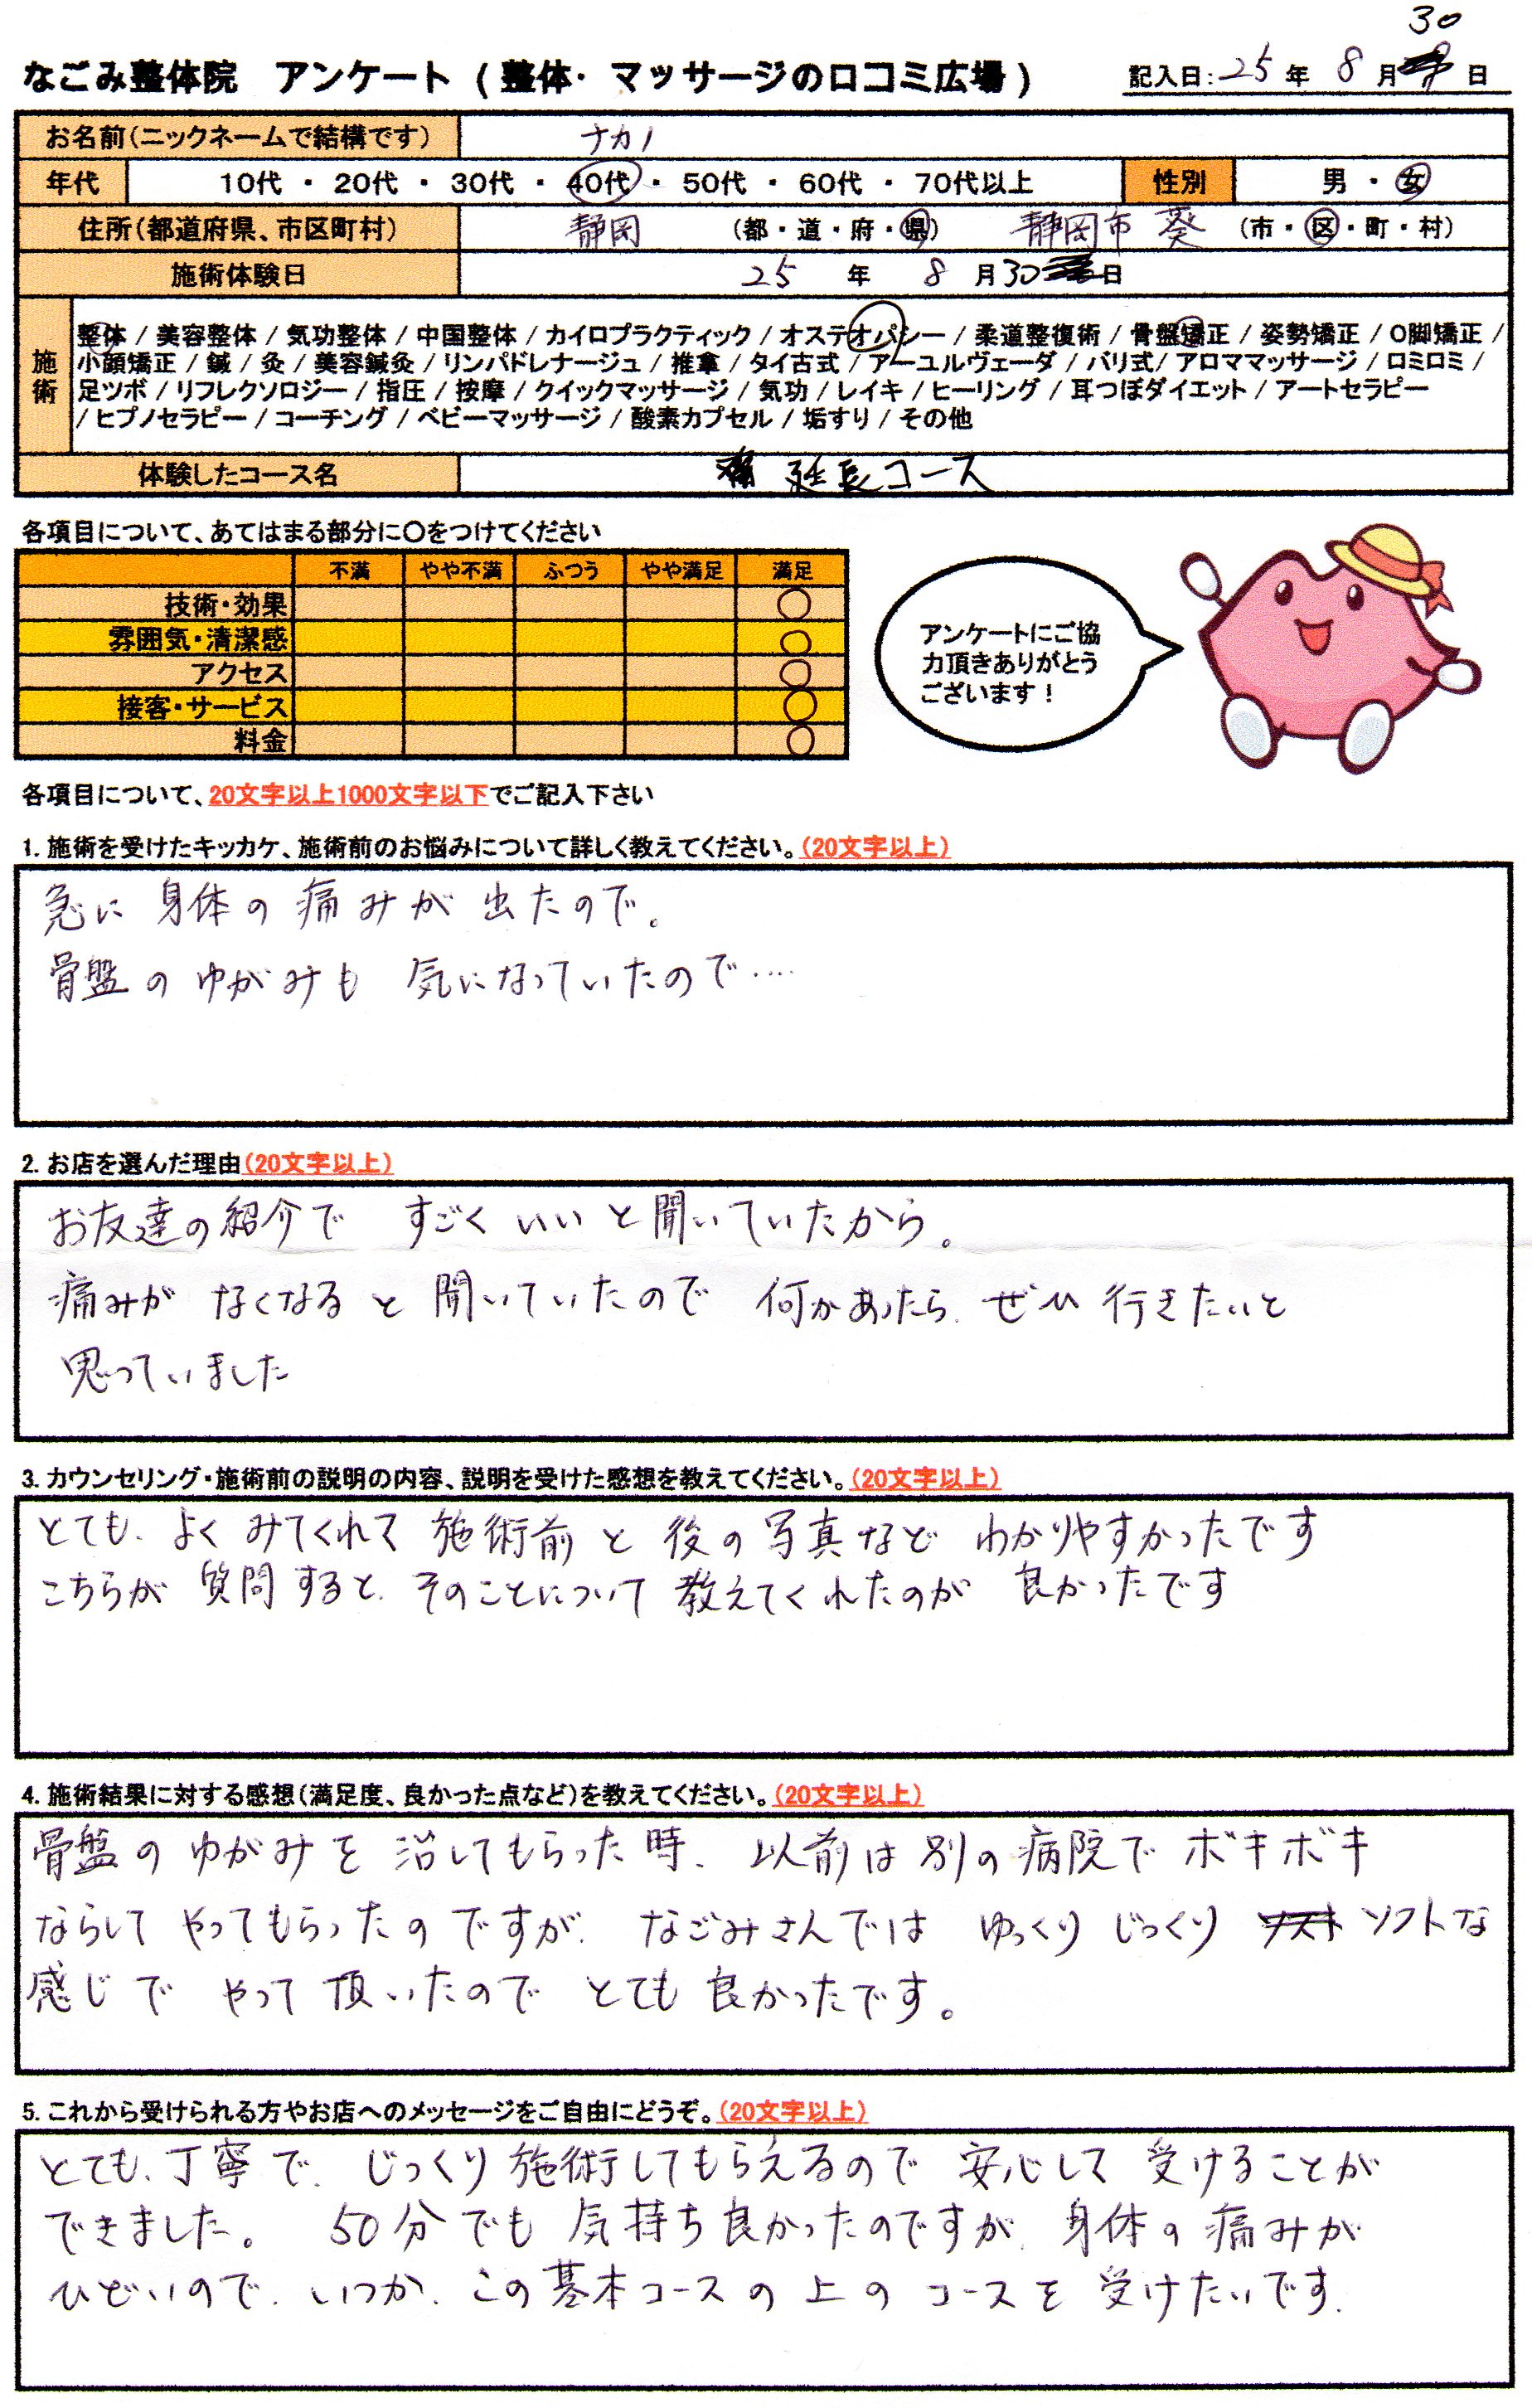 30
なごみ整体院 アンケート (整体・マッサージの口コミ広場)
記入日:25年 8月 日
お名前(ニックネームで結構です) ナカノ
年代 10代 ・ 20代 ・ 30代 ・ 40代 ・ 50代 ・ 60代 ・ 70代以上 性別 男 ・ 女
住所(都道府県、市区町村) 静岡 (都・道・府・県) 静岡市 葵 (市・区・町・村)
施術体験日 25 年 8 月30日
施術
整体 / 美容整体 / 気功整体 / 中国整体 / カイロプラクティック / オステオパシー / 柔道整復術 / 骨盤矯正 / 姿勢矯正 / O脚矯正 /
小顔矯正 / 鍼 / 灸 / 美容鍼灸 / リンパドレナージュ / 推拿 / タイ古式 / アーユルヴェーダ / バリ式 / アロママッサージ / ロミロミ /
足ツボ / リフレクソロジー / 指圧 / 按摩 / クイックマッサージ / 気功 / レイキ / ヒーリング / 耳つぼダイエット / アートセラピー
/ ヒプノセラピー / コーチング / ベビーマッサージ / 酸素カプセル / 垢すり / その他
体験したコース名 延長コース
各項目について、あてはまる部分に○をつけてください
不満 やや不満 ふつう やや満足 満足
技術・効果 ○
雰囲気・清潔感 ○
アクセス ○
接客・サービス ○
料金 ○
アンケートにご協
力頂きありがとう
ございます!
各項目について、20文字以上1000文字以下でご記入下さい
1. 施術を受けたキッカケ、施術前のお悩みについて詳しく教えてください。(20文字以上)
急に 身体の 痛みが 出たので。
骨盤の ゆがみも 気になっていたので‥‥
2. お店を選んだ理由(20文字以上)
お友達の紹介で すごく いい と 聞いていたから。
痛みが なくなる と 聞いていたので 何かあったら、ぜひ 行きたいと
思っていました
3. カウンセリング・施術前の説明の内容、説明を受けた感想を教えてください。(20文字以上)
とても、よく みてくれて 施術前 と 後の 写真など わかりやすかったです
こちらが 質問すると、そのことについて 教えてくれたのが 良かったです
4. 施術結果に対する感想(満足度、良かった点など)を教えてください。(20文字以上)
骨盤の ゆがみを 治してもらった時、以前は別の病院で ボキボキ
ならして やってもらったの ですが、なごみさんでは ゆっくり じっくり ソフトな
感じで やって 頂いたので とても 良かったです。
5. これから受けられる方やお店へのメッセージをご自由にどうぞ。(20文字以上)
とても、丁寧で、じっくり 施術してもらえるので 安心して 受けることが
できました。 50分でも 気持ち良かったのですが、身体の痛みが
ひどいので、いつか、この基本コースの上の コースを 受けたいです.